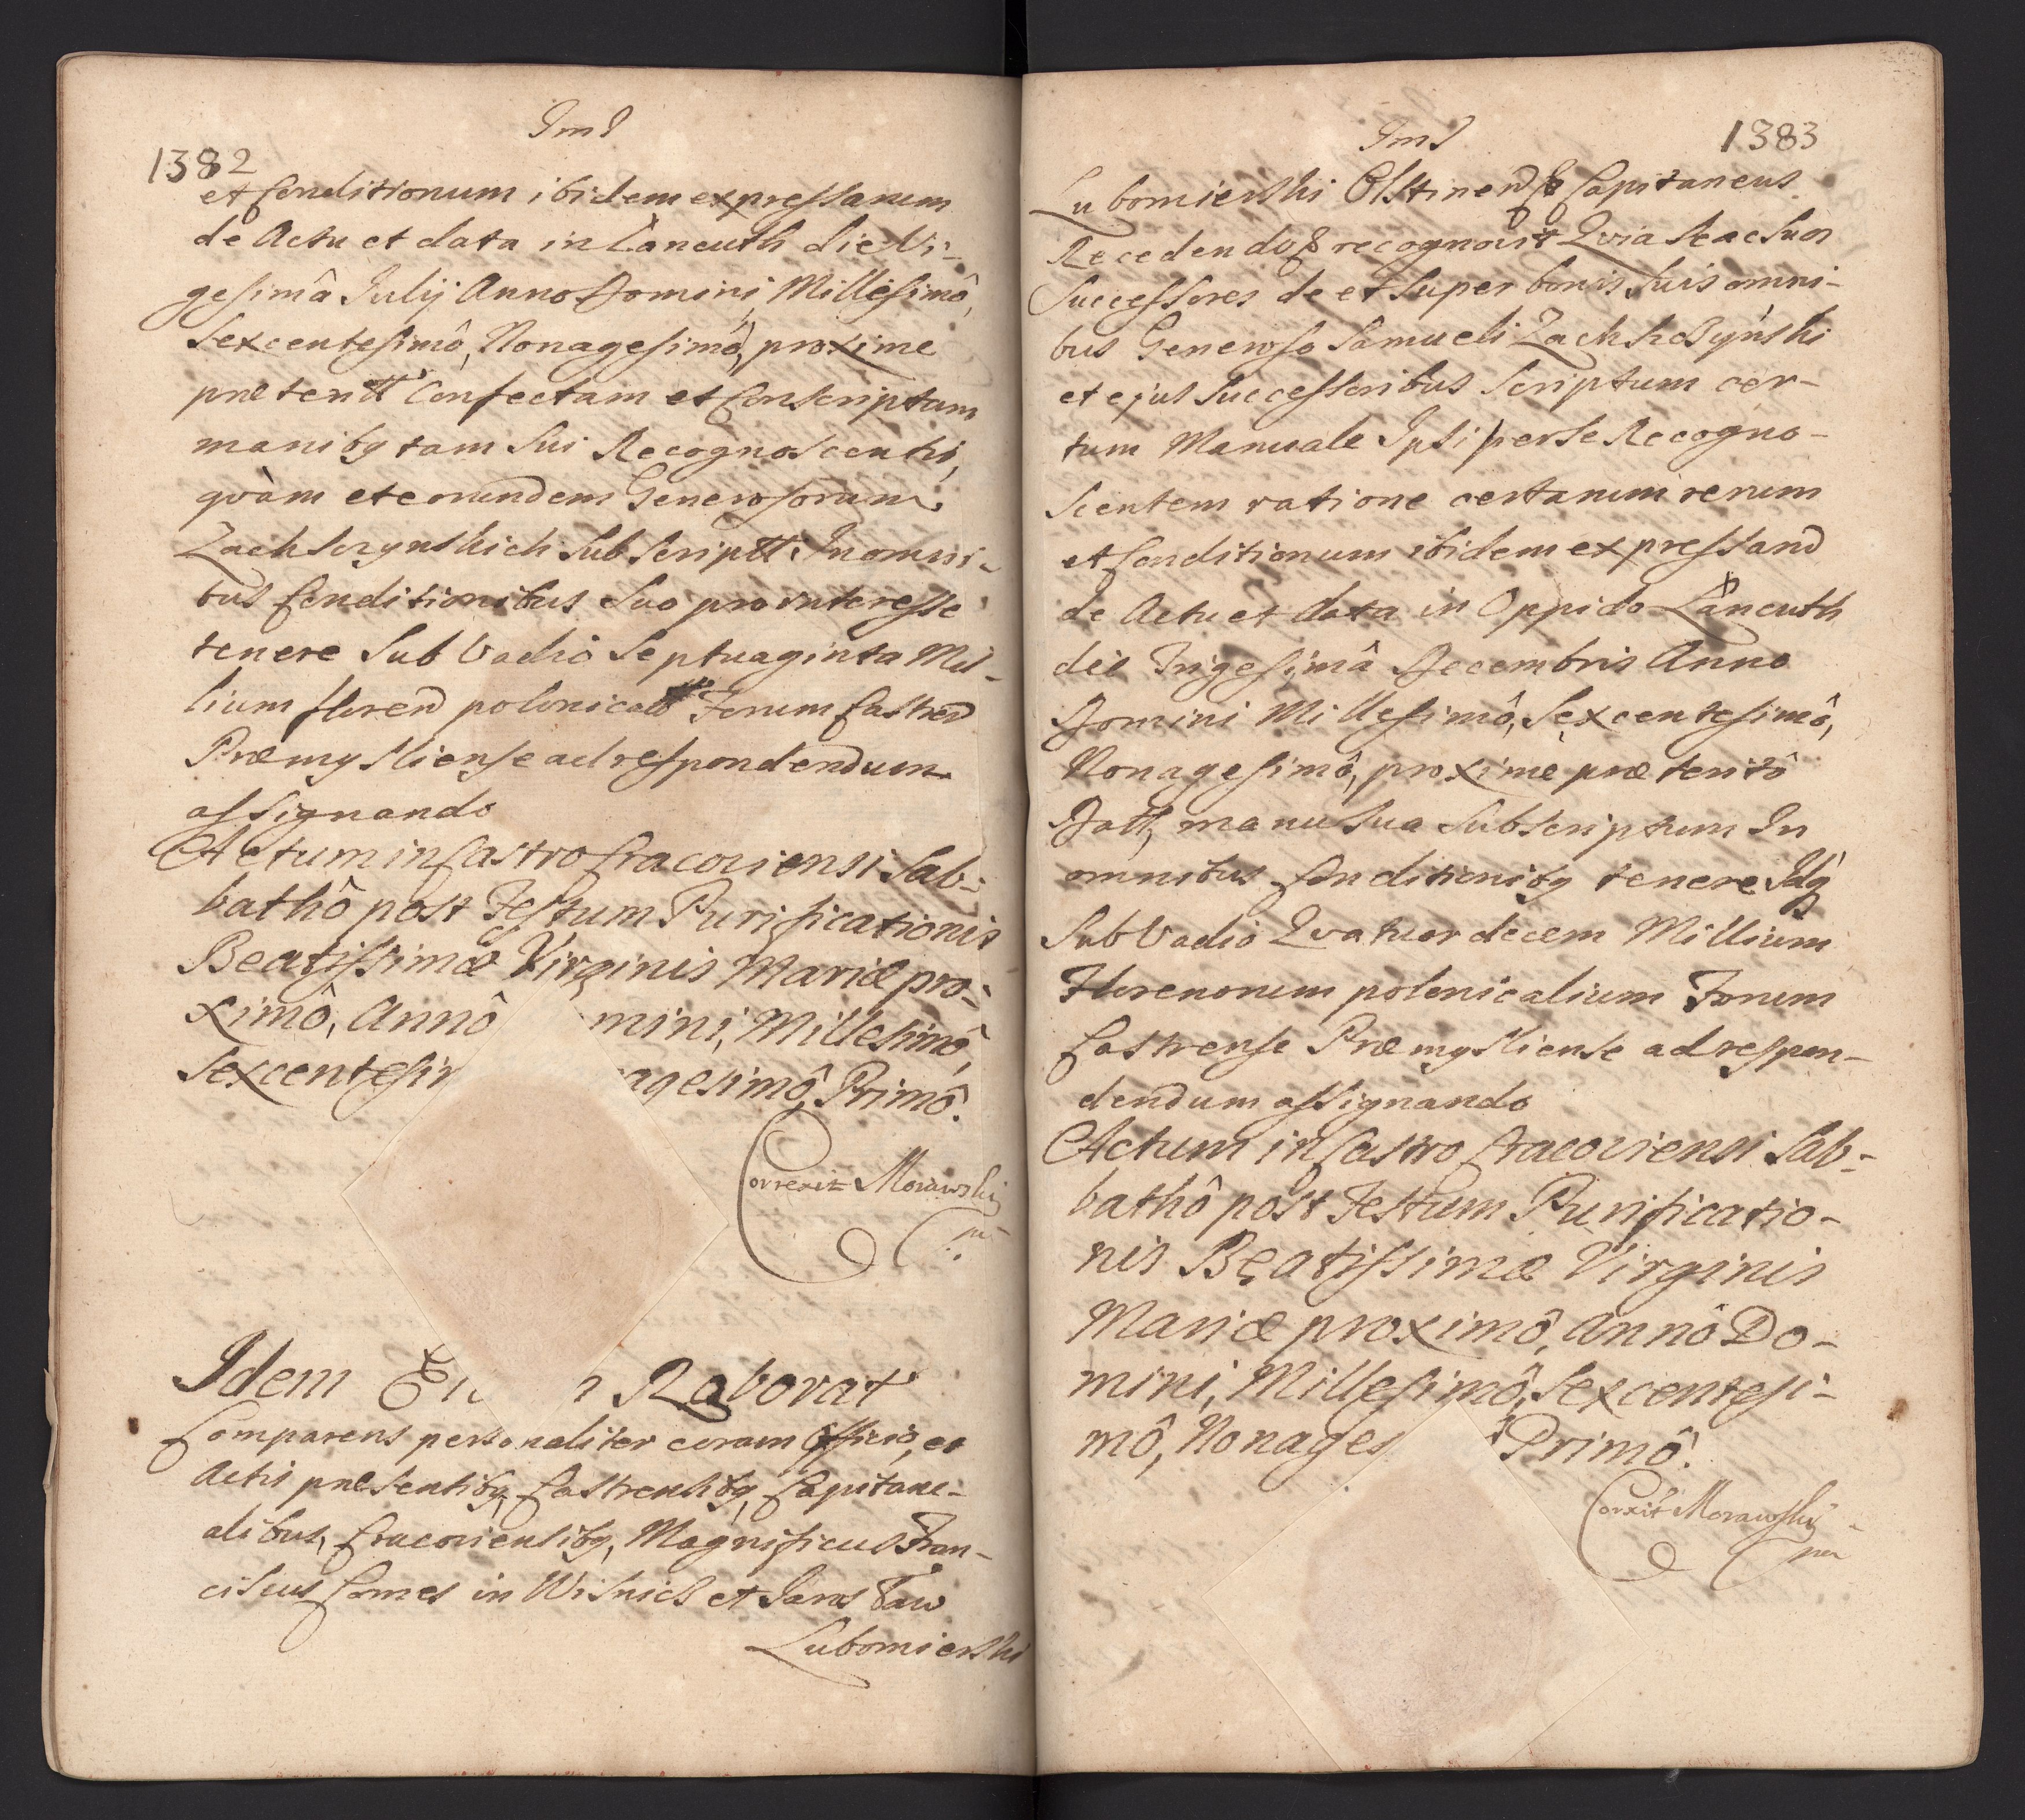 Jms
1382
et Conditionum ibidem expressarum
de Actu et data in Łancuth die Vi-
gesimâ Julij Anno Domini, Millesimô,
Sexcentesimô, Nonagesimô, proxime
præteritt Confectam et Conscriptam
manibq tam Sui Recognoscentis,
qvàm et eorundem Generosorum
Zachscrynskich Subscriptt, In omni-
bus Conditionibus Suo pro interesse
tenere Sub Vadio Septuaginta Mil-
lium floren polonical Forum Castren
Præmysliense ad respondendum
assignando
Actum in Castro Cracoviensi Sab-
bathô post Festum Purificationis
Beatissimæ Virginis Mariæ pro-
ximô, Annô mini, Millesimô,
Sexcentesi agesimô, Primô.
Correxit Morawski
Idem Roborat
Comparens personaliter coram Officio, et
Actis præsentibq, Castrensibq, Capitane-
alibus, Cracoviensibq, Magnificus Fran-
ciscus Comes in Wisnicz et Jarosław
Lubomierski
Jms
1383
Lubomierski Olstinen Capitaneus
Recedendo recognovit Qvia Se ac Suos
Successores de et Super bonis Suis omni-
bus Generoso Samueli Zachscrynski
et ejus Successoribus Scriptum cer-
tum Manuale Ipsi per Se Recogno-
scentem ratione certarum rerum
et Conditionum ibidem expressan
de Actu et data in Oppido Łancuth
die Trigesimâ Decembris Anno
Domini Millesimô, Sexcentesimô,
Nonagesimô, proxime præteritô
Datt, manu Sua Subscriptum In
omnibus Conditionibq tenere Idq
Sub Vadio Qvatuordecem Millium
Florenorum polonicalium Forum
Castrense Præmysliense ad respon-
dendum assignando
Actum in Castro Cracoviensi Sab-
bathô post Festum Purificatio-
nis Beatissimæ Virginis
Mariæ proximô, Annô Do-
mini, Millesimô, Sexcentesi-
mô, Nonages Primô.
Corxit Morawski